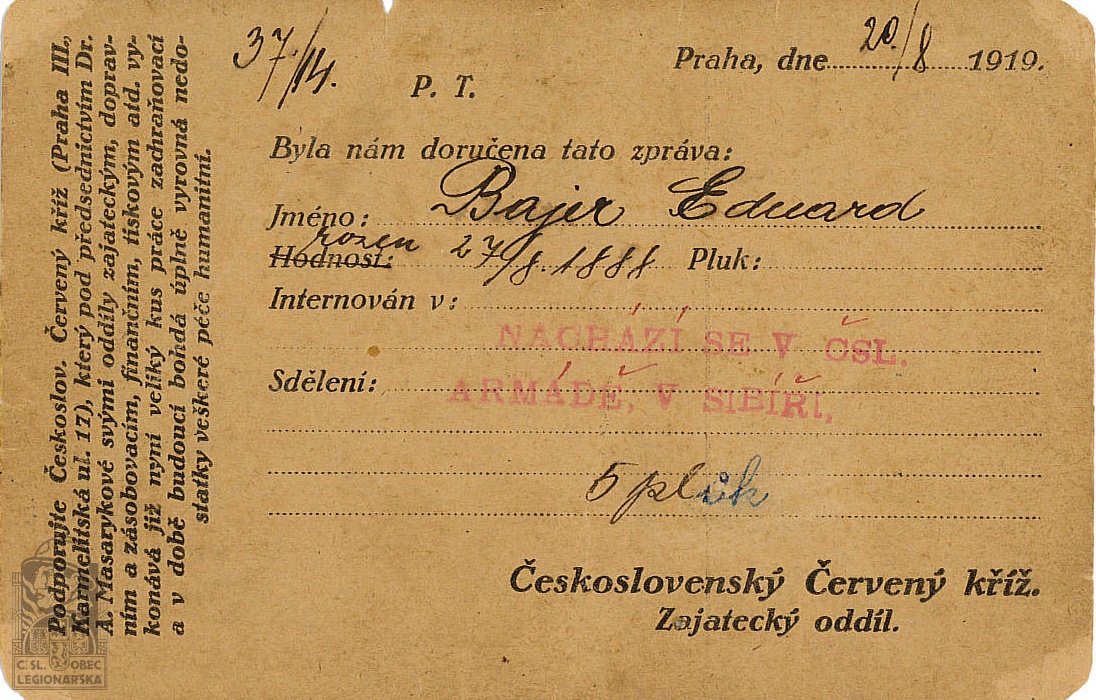 Podporujte Českoslov. Červený kříž (Praha III.,
Karmelitská ul. 17), který pod předsednictvím Dr.
A. Masarykové svými oddíly zajateckým, doprav-
ním a zásobovacím, finančním, tiskovým atd. vy-
konává již nyní veliký kus práce zachraňovací
a v době budoucí bohdá úplně vyrovná nedo-
statky veškeré péče humanitní.
37/14.
Praha, dne 20/8 1919.
P. T.
Byla nám doručena tato zpráva:
Jméno: Bajer Eduard
rozen
Hodnost: 27/8. 1888 Pluk:
Internován v:
NACHÁZÍ SE V ČSL.
Sdělení:
ARMÁDĚ, V SIBÍŘI.
5 pluk
Československý Červený kříž.
Zajatecký oddíl.
Č. SL. OBEC
LEGIONÁŘSKÁ